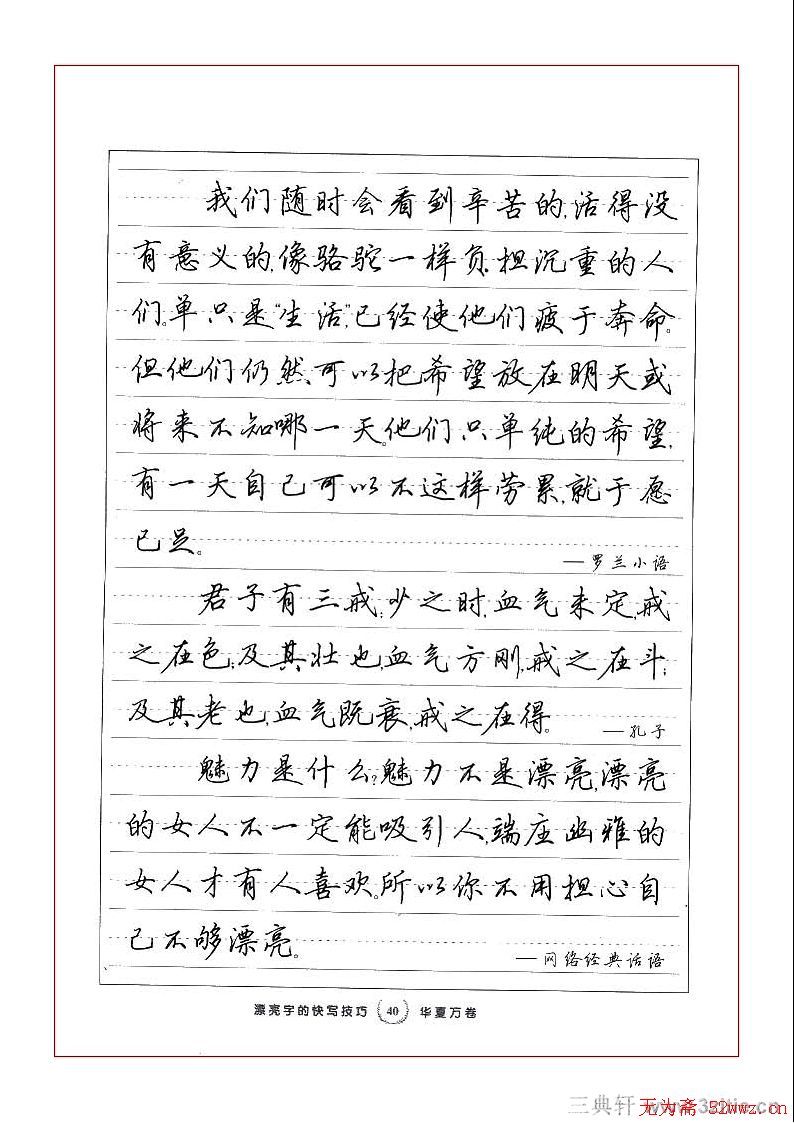 我们随时会看到辛苦的,活得没
有意义的,像骆驼一样负担沉重的人
们。单只是“生活”,已经使他们疲于奔命。
但他们仍然可以把希望放在明天或
将来不知哪一天。他们只单纯的希望,
有一天自己可以不这样劳累,就于愿
已足。
—罗兰小语
君子有三戒:少之时,血气未定,戒
之在色;及其壮也,血气方刚,戒之在斗;
及其老也,血气既衰,戒之在得。
—孔子
魅力是什么?魅力不是漂亮,漂亮
的女人不一定能吸引人,端座幽雅的
女人才有人喜欢。所以你不用担心自
己不够漂亮。
—网络经典话语
漂亮字的快写技巧 40 华夏万卷
三典轩
无为斋 52wwz.cn